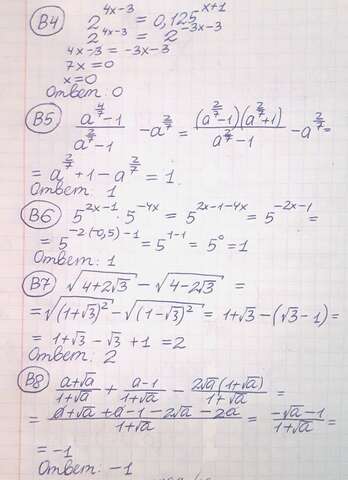 В4 2^{4x-3} = 0,125^{x+1}
2^{4x-3} = 2^{-3x-3}
4x-3 = -3x-3
7x = 0
x = 0
Ответ: 0
В5 \frac{a^{\frac{4}{7}}-1}{a^{\frac{2}{7}}-1} - a^{\frac{2}{7}} = \frac{(a^{\frac{2}{7}}-1)(a^{\frac{2}{7}}+1)}{a^{\frac{2}{7}}-1} - a^{\frac{2}{7}} =
= a^{\frac{2}{7}} + 1 - a^{\frac{2}{7}} = 1.
Ответ: 1
В6 5^{2x-1} · 5^{-4x} = 5^{2x-1-4x} = 5^{-2x-1} =
= 5^{-2(-0,5)-1} = 5^{1-1} = 5^0 = 1
Ответ: 1
В7 \sqrt{4+2\sqrt{3}} - \sqrt{4-2\sqrt{3}} =
= \sqrt{(1+\sqrt{3})^2} - \sqrt{(1-\sqrt{3})^2} = 1+\sqrt{3} - (\sqrt{3}-1) =
= 1+\sqrt{3} - \sqrt{3} + 1 = 2
Ответ: 2
В8 \frac{a+\sqrt{a}}{1+\sqrt{a}} + \frac{a-1}{1+\sqrt{a}} - \frac{2\sqrt{a}(1+\sqrt{a})}{1+\sqrt{a}} =
= \frac{a+\sqrt{a}+a-1-2\sqrt{a}-2a}{1+\sqrt{a}} = \frac{-\sqrt{a}-1}{1+\sqrt{a}} =
= -1
Ответ: -1